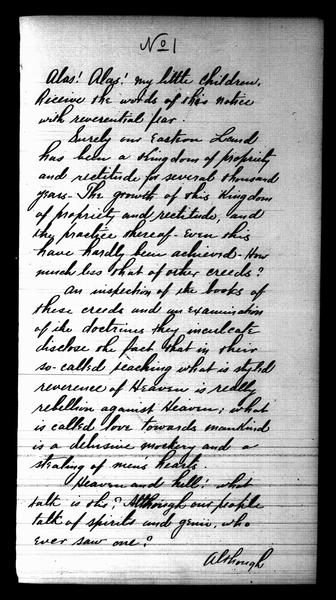 No 1
Alas! Alas! my little children.
Receive the words of this notice
with reverential fear.
Surely our Eastern Land
has been a Kingdom of propriety
and rectitude for several thousand
years. The growth of this Kingdom
of propriety and rectitude, and
the practice thereof - Even this
have hardly been achieved - How
much less that of other creeds?
An inspection of the books of
these creeds and an examination
of the doctrines they inculcate
disclose the fact that in their
so-called teaching what is styled
reverence of Heaven is really
rebellion against Heaven; what
is called love towards mankind
is a delusive mockery and a
stealing of men's hearts.
Heaven and hell! what
talk is this? Although our people
talk of spirits and genii, who
ever saw one?
Although